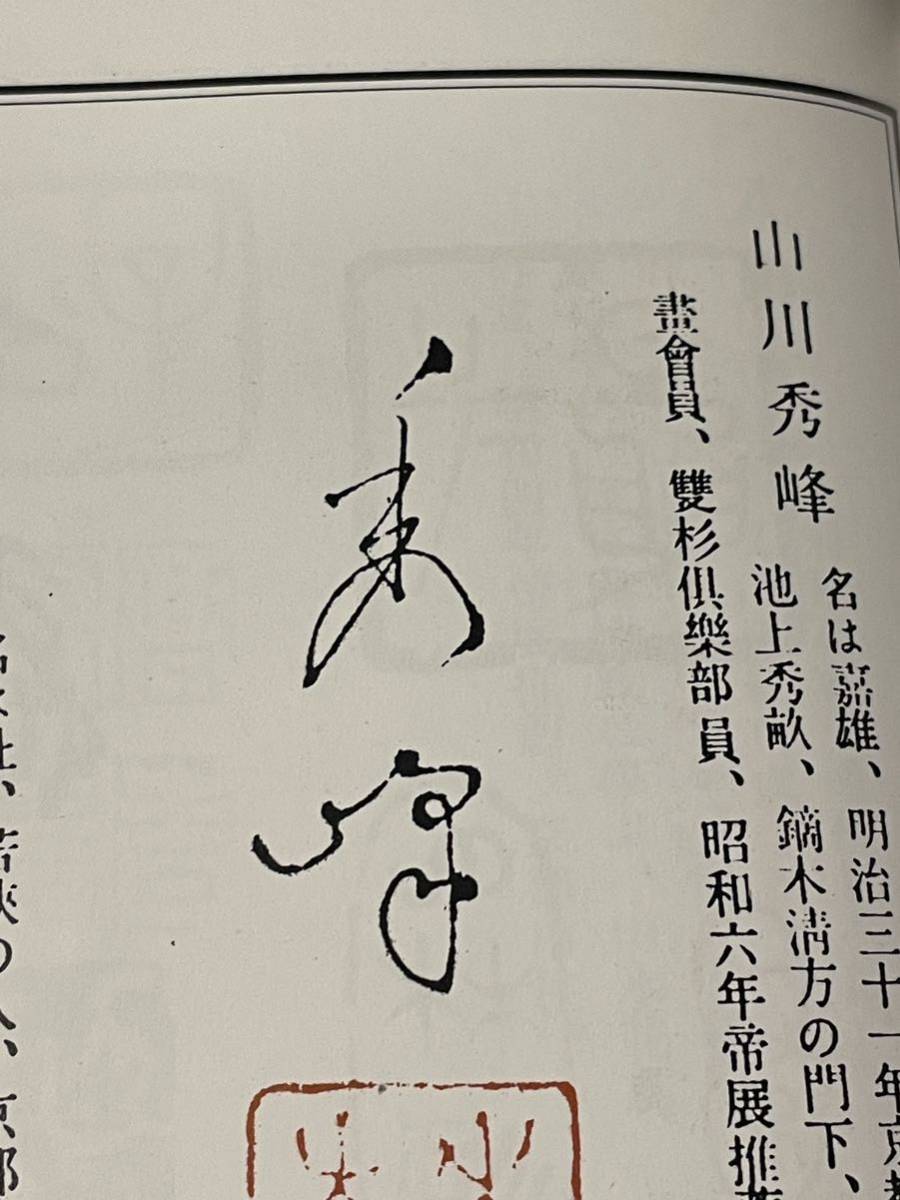 山川秀峰
名は嘉雄、明治三十一年京都
池上秀畝、鏑木清方の門下、
畫會員、雙杉倶樂部員、昭和六年帝展推薦
秀峰
若狹の人、京都